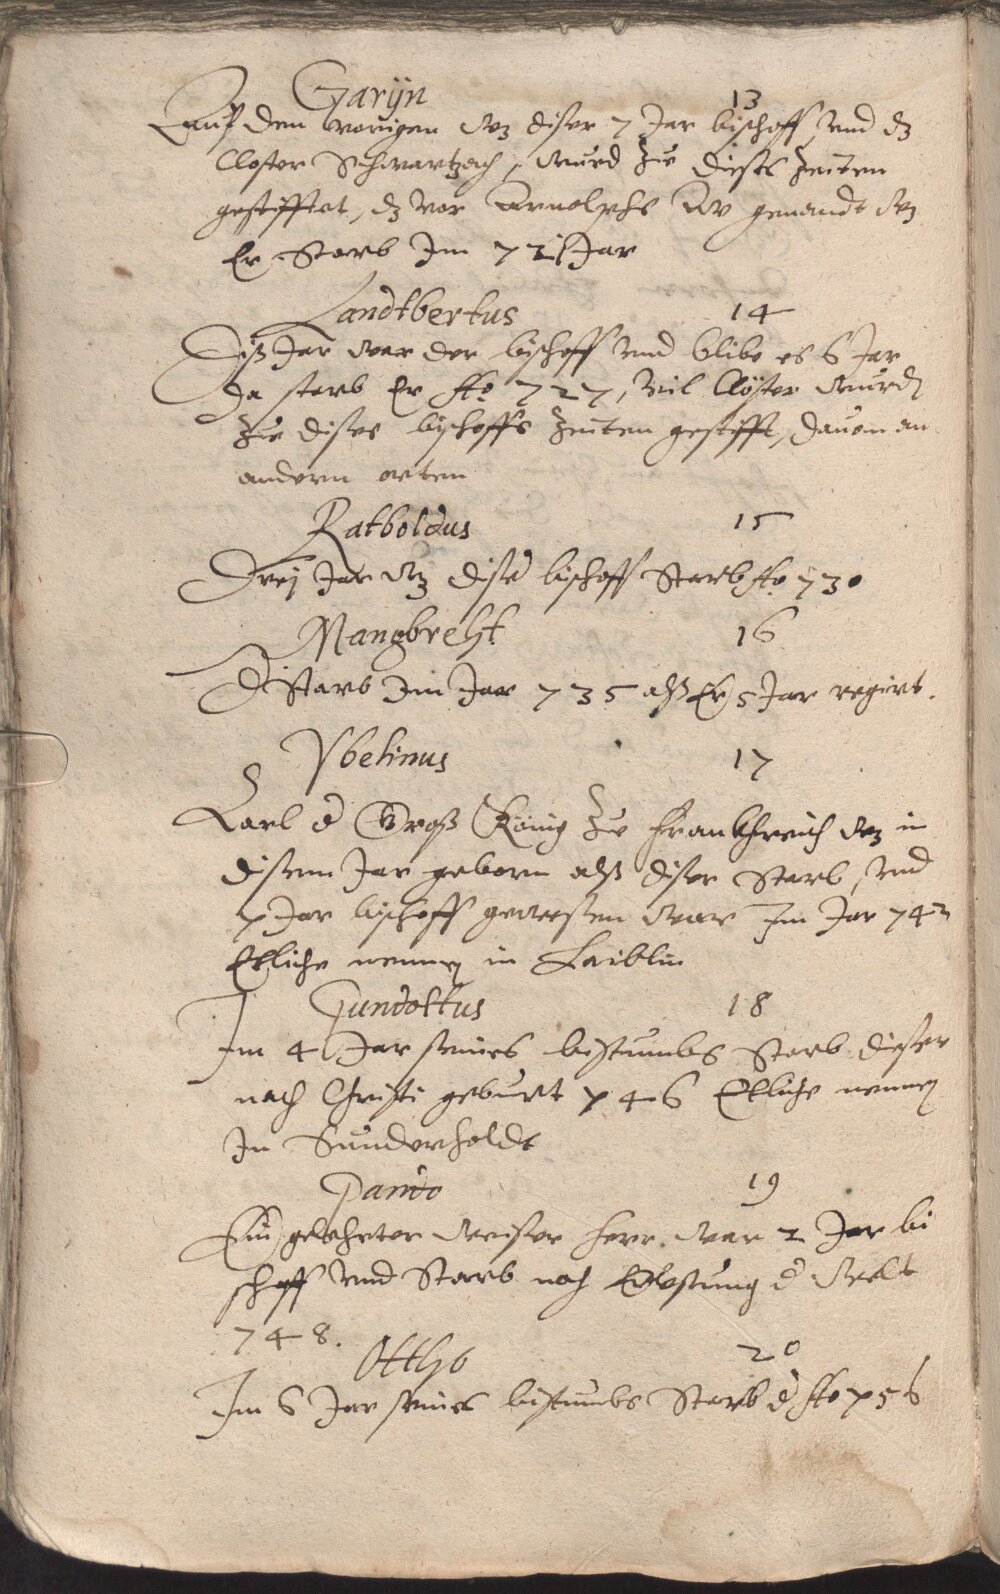 Garijn 13
Auf den vorigen wz diser 7 Jar bischoff, vnd dz
Closter Schwartzach, wurd zue dises Zeiten
gestifftet, dz vor Arnolphs Aw genandt wz
Er Starb Im 721 Jar
Landtbertus 14
Diß Jar war der bischoff vnd blibe es 6 Jar
Da starb Er Ao 727, Vil Clöster wurdn
Zue dises bischoffs Zeiten gestifft, dauon an
andern orten
Ratboldus 15
Drej Jar wz diser bischoff Starb Ao 730
Mangbreht 16
Starb Im Jar 735 alß Er 5 Jar regirt.
Vbelinus 17
Karl d Groß König Zue Frankhreich wz in
disem Jar geborn alß diser Starb, vnd
7 Jar bischoff gewesen war Im Jar 742
Etliche nennen in Laiblin
Gundoltus 18
Im 4 Jar seines bistumbs Starb dieser
nach Christi geburt 746 Etliche nennen
In Sunderholdt
Pando 19
Ein gelehrter weiser herr war 2 Jar bi
schoff vnd Starb nach Erlösung d welt
748.
Ottho 20
Im 6 Jar seines bistumbs Starb d Ao 756